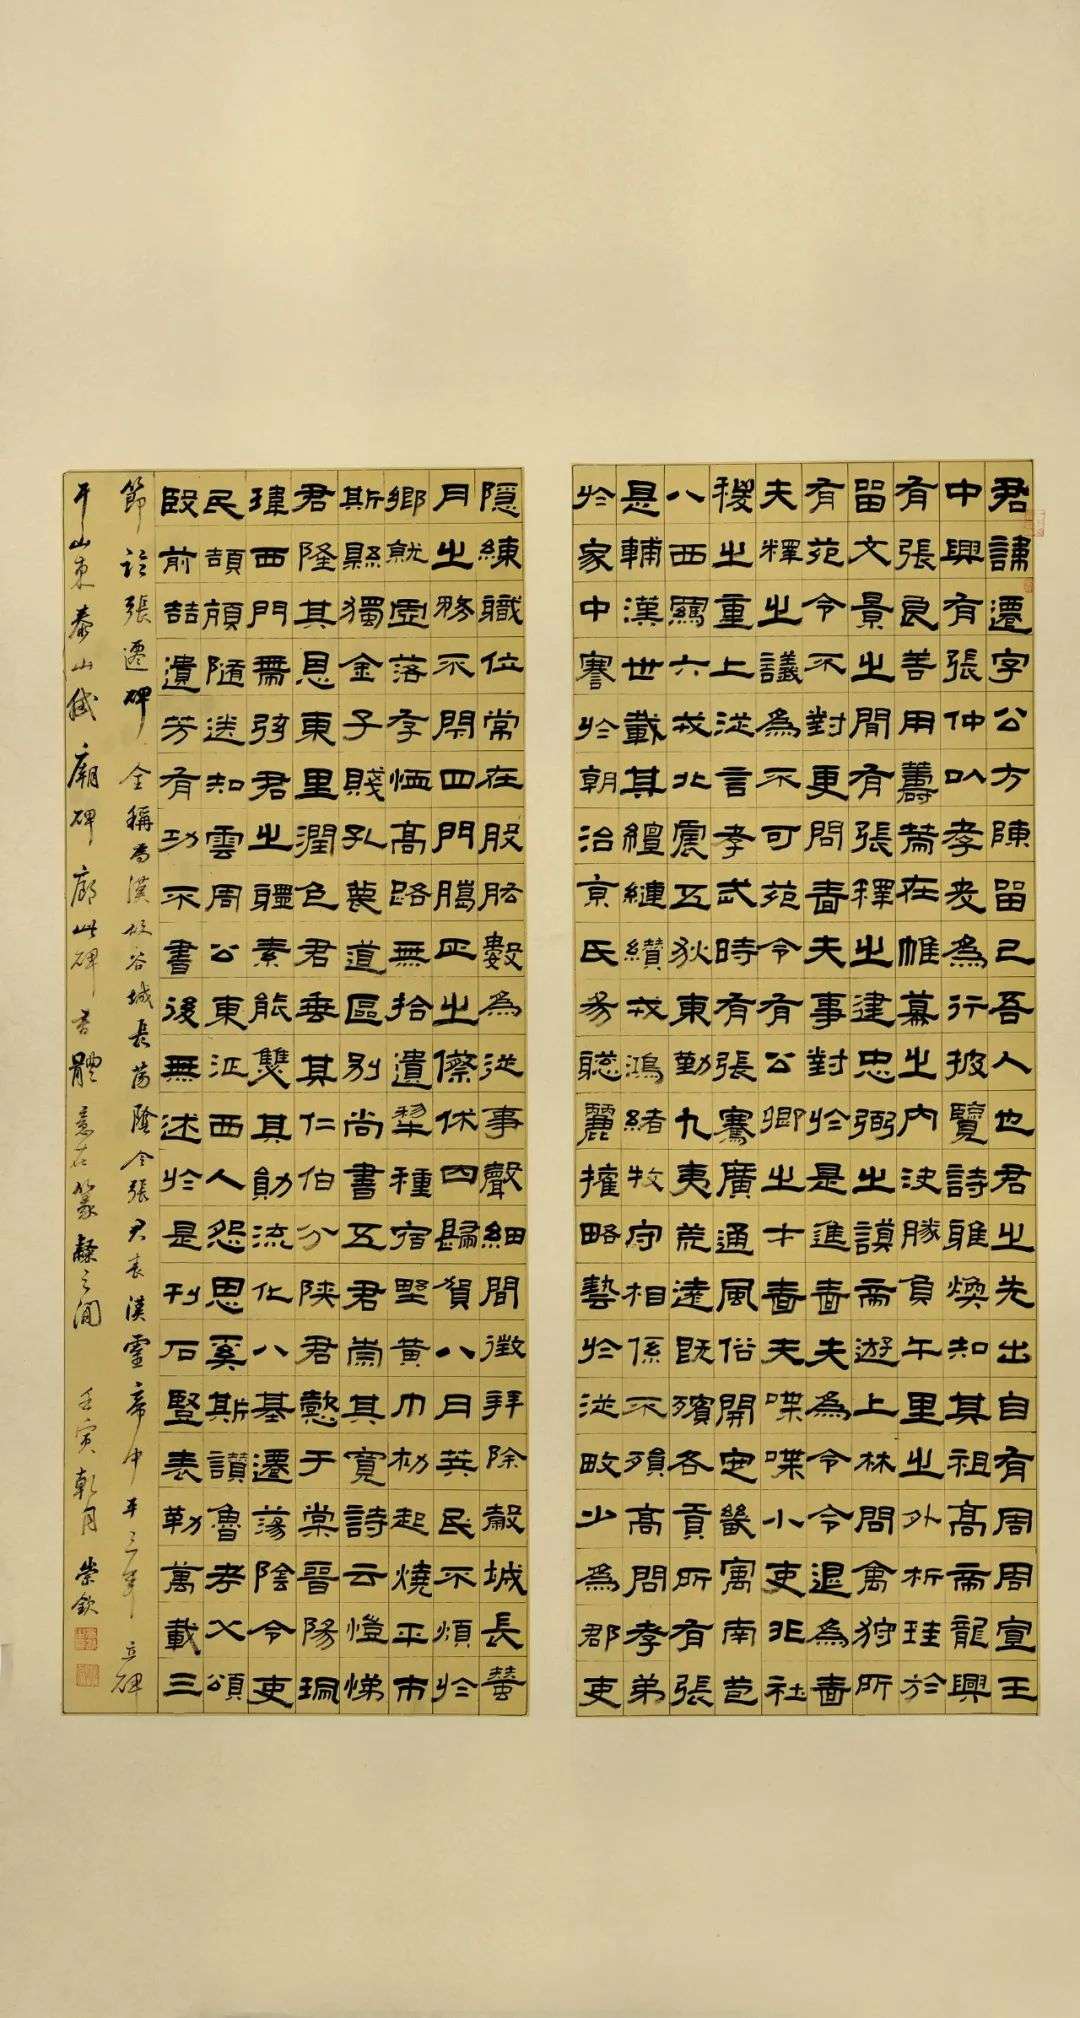 君諱遷字公方陳留己吾人也君之先出自有周周宣王
中興有張仲以孝友為行披覽詩雅煥知其祖高帝龍興
有張良善用籌策在帷幕之內決勝負千里之外析珪於
留文景之間有張釋之建忠弼之謨帝遊上林問禽狩所
有苑令不對更問嗇夫事對於是進嗇夫為令令退為嗇
夫釋之議為不可苑令有公卿之才嗇夫喋喋小吏非社
稷之重上從言孝武時有張騫廣通風俗開定畿寓南苞
八西羈六戎北震五狄東勤九夷荒遠既殯各貢所有張
是輔漢世載其纏縺纘戎鴻緒牧守相係不殞高問孝弟
於家中謇於朝治京氏易聰麗權略藝於從畋少為郡吏
隱練職位常在股肱數為從事聲細間徵拜除穀城長蠶
月之務不閉四門臘正之僚休囚歸賀八月筭民不煩於
鄉就虛落存恤高路無拾遺犁種宿野黃巾初起燒平市
斯縣獨金子賤孔蔑道區別尚書五君崇其寬詩云愷悌
君隆其恩東里潤色君垂其仁伯分陝君懿于棠晉陽珮
瑋西門帶弦君之體素能雙其勛流化八基遷蕩陰令吏
民頡頏隨送如雲周公東征西人怨思奚斯讚魯考父頌
殷前喆遺芳有功不書後無述於是刊石豎表勒萬載三
節臨張遷碑 全稱為漢故谷城長蕩陰令張君表漢靈帝中平三年立碑
于山東泰山岱廟碑廊此碑書體意在篆隸之間 壬寅乾月 崇欽